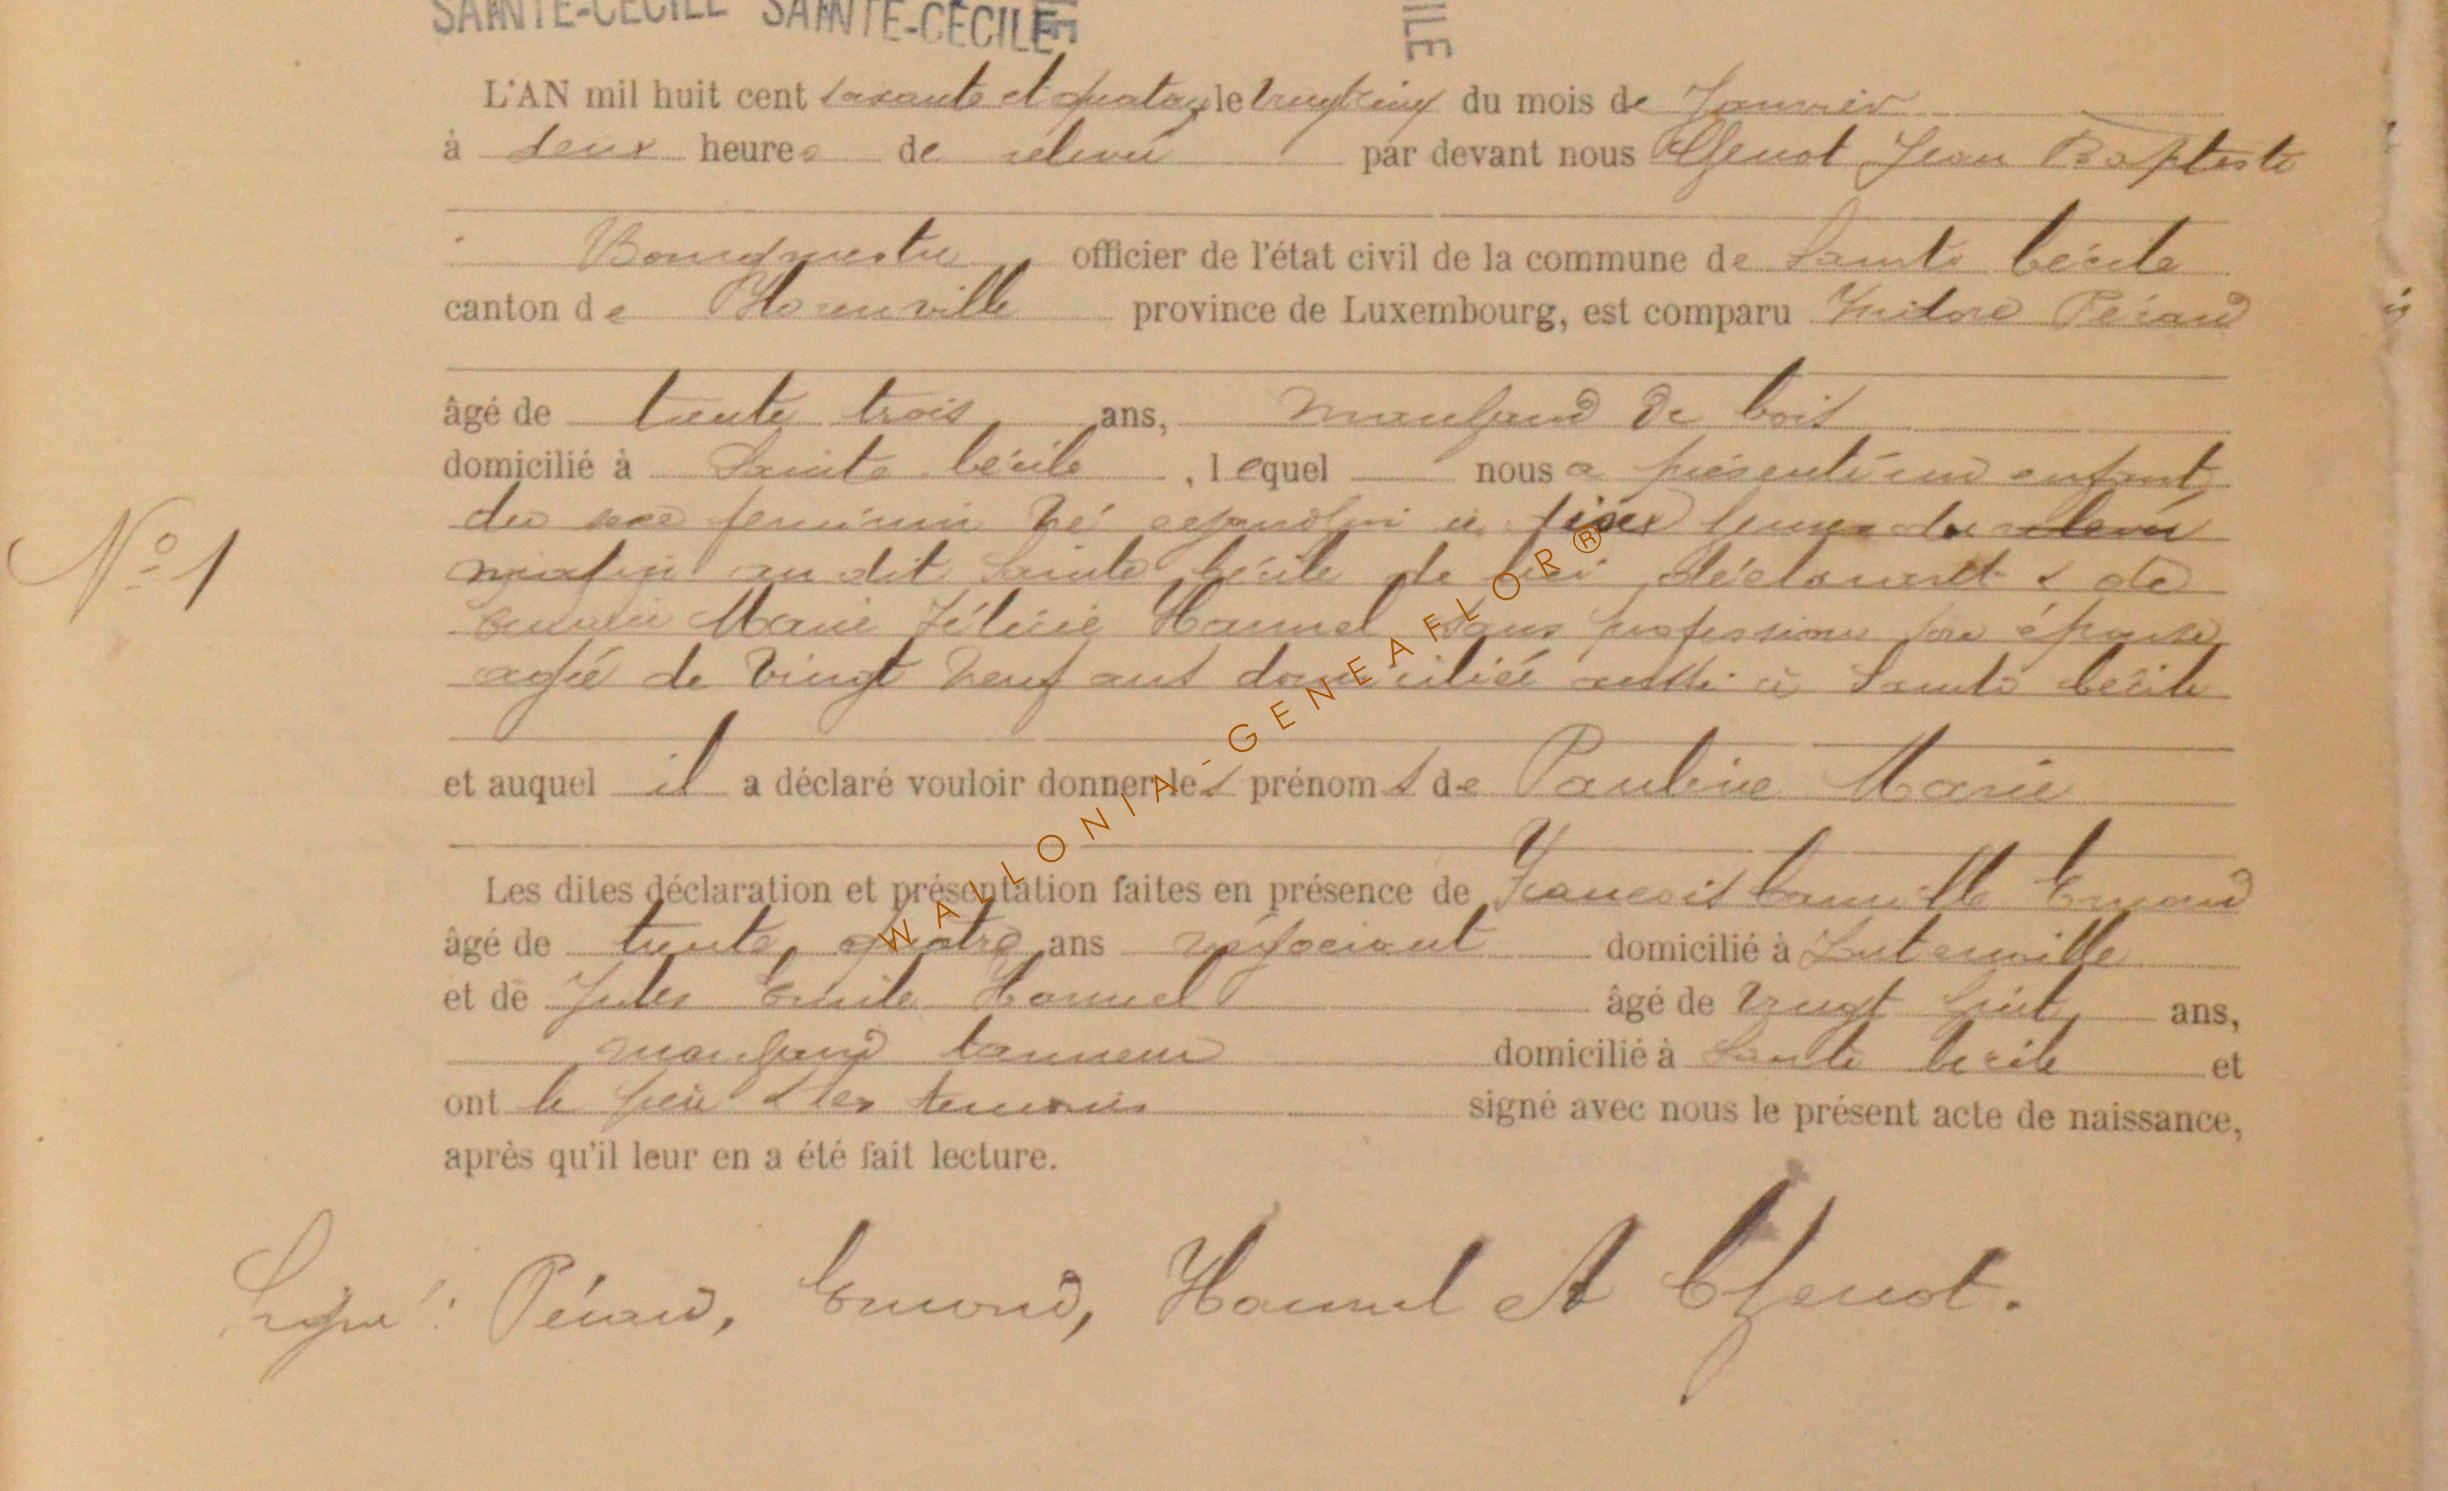 SAINTE-CÉCILE SAINTE-CÉCILE
N° 1
L'AN mil huit cent soixante et quatorze le vingt cinq du mois de Janvier
à deux heures de relevée par devant nous Chenot Jean Baptiste
Bourgmestre officier de l'état civil de la commune de Sainte Cécile
canton de Florenville province de Luxembourg, est comparu Isidore Pérard
âgé de trente trois ans, marchand de bois
domicilié à Sainte Cécile, lequel nous a présenté un enfant
du sexe feminin né aujourd'hui à six heures du relevée
matin au dit Sainte Cécile de lui déclarant & de
Marie Félicie Hannel sans profession son épouse
agée de vingt neuf ans domiciliée aussi à Sainte Cécile
et auquel il a déclaré vouloir donner les prénoms de Pauline Marie
Les dites déclaration et présentation faites en présence de François Camille Emond
âgé de trente quatre ans négociant domicilié à
et de Jules Emile Hannel âgé de vingt huit ans,
marchand tanneur domicilié à Sainte Cécile et
ont le père & les temoins signé avec nous le présent acte de naissance,
après qu'il leur en a été fait lecture.
Signé : Pérard, Emond, Hannel et Chenot.
WALLONIA-GENEAFLOR®